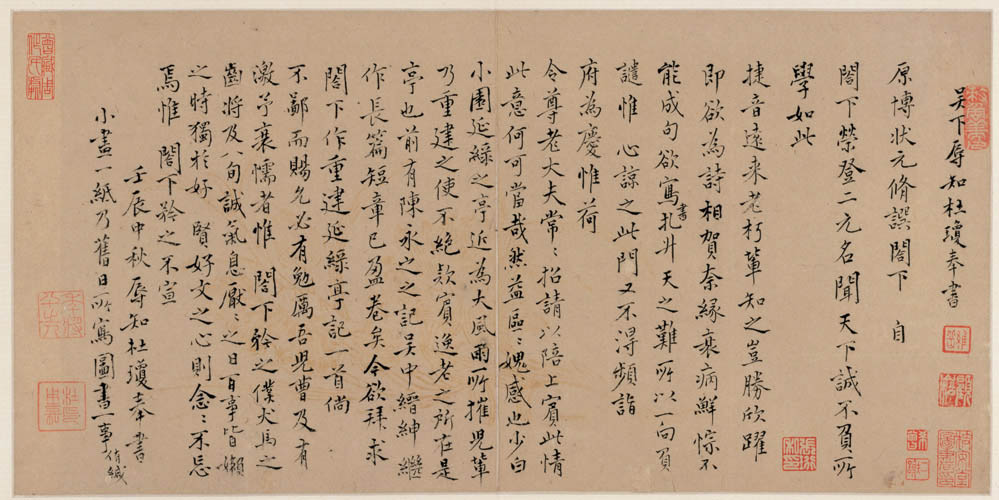 吴下辱知杜瓊奉書
原博狀元脩譔閣下 自
閣下榮登二元名聞天下誠不負所
學如此
捷音遠來老朽輩知之豈勝欣躍
即欲為詩相賀奈緣衰病鮮悰不
能成句欲寫書扎升天之難所以一向負
譴惟 心諒之此門又不得頻詣
府為慶惟荷
令尊老大夫常〻招請以陪上賓此情
此意何可當哉然益區〻媿感也少白
小園延綠之亭近為大風雨所摧兒輩
乃重建之使不絕款賓逸老之所在是
亭也前有陳永之之記吴中縉紳繼
作長篇短章已盈卷矣今欲拜求
閣下作重建延綠亭記一首倘
不鄙而賜允必有勉厲吾兒曹及有
激予衰懦者惟 閣下矜之僕犬馬之
齒將及八旬誠氣息厭〻之日百事皆嬾
之時獨於好 賢好文之心則念〻不忘
焉惟 閣下矜之不宣
壬辰中秋辱知杜瓊奉書
小畫一紙乃舊日所寫圖書一事侑緘